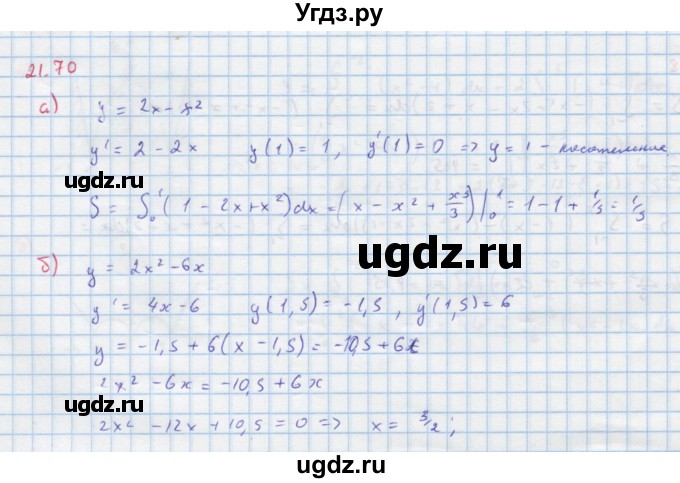 Угдз.ру
21.70
а) y = 2x - x²
y' = 2 - 2x y(1) = 1, y'(1) = 0 => y = 1 - касательная
S = ∫₀¹(1 - 2x + x²)dx = (x - x² + x³/3)|₀¹ = 1 - 1 + 1/3 = 1/3
ugdz.ru
б) y = 2x² - 6x
ugdz.ru
y' = 4x - 6 y(1,5) = -1,5, y'(1,5) = 6
y = -1,5 + 6(x - 1,5) = -10,5 + 6x
2x² - 6x = -10,5 + 6x
ugdz.ru
2x² - 12x + 10,5 = 0 => x = 3/2;
ugdz.ru
ugdz.ru